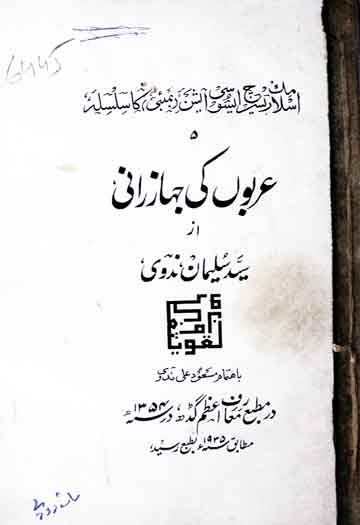 6445
اسلامک ریسرچ ایسوسی ایشن (بمبئی) کا سلسلہ
۵
عربوں کی جہازرانی
از
سید سلیمان ندوی
باہتمام مسعود علی ندوی
در مطبع معارف اعظم گڈھ، در سنہ ۱۳۵۴ھ
مطابق سنہ ۱۹۳۵ء بطبع رسید